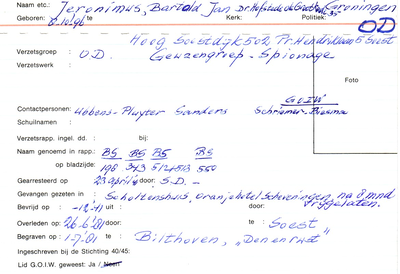 Naam etc.: Jeronimus, Bartold Jan Dr. Hofstede de Grootkade 35 Groningen
Geboren: 8-10-'96 te Kerk: Politiek:
OD
Hoog Soestdijk 502 Pr. Hendriklaan 5 Soest
Verzetsgroep : O.D. Gewzengriep - Spionage
Verzetswerk :
Foto
G.O.I.W
Contactpersonen: Wobens - Pluyter Sanders Schriemer - Biesma
Schuilnaam :
Verzetsrapp. ingel. dd. : bij:
Naam genoemd in rapp.: BS BS BS BS
op bladzijde: 198 343 512+513 550
Gearresteerd op : 23 april door: S.D. -
Gevangen gezeten in : Scholtenshuis, Oranjehotel Scheveningen na 8 mnd
Bevrijd op : -12-'41 door: vrijgelaten.
Overleden op : 26-6-'81 door: te Soest
Begraven op : 1-7-'81 te: Bilthoven, "Den en rust"
Ingeschreven bij de Stichting 40/45:
Lid G.O.I.W. geweest: Ja / Neen